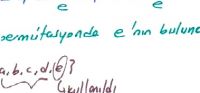 e e
permütasyonda e'nin bulund
a, b, c, d, (e) }
kullanıldı